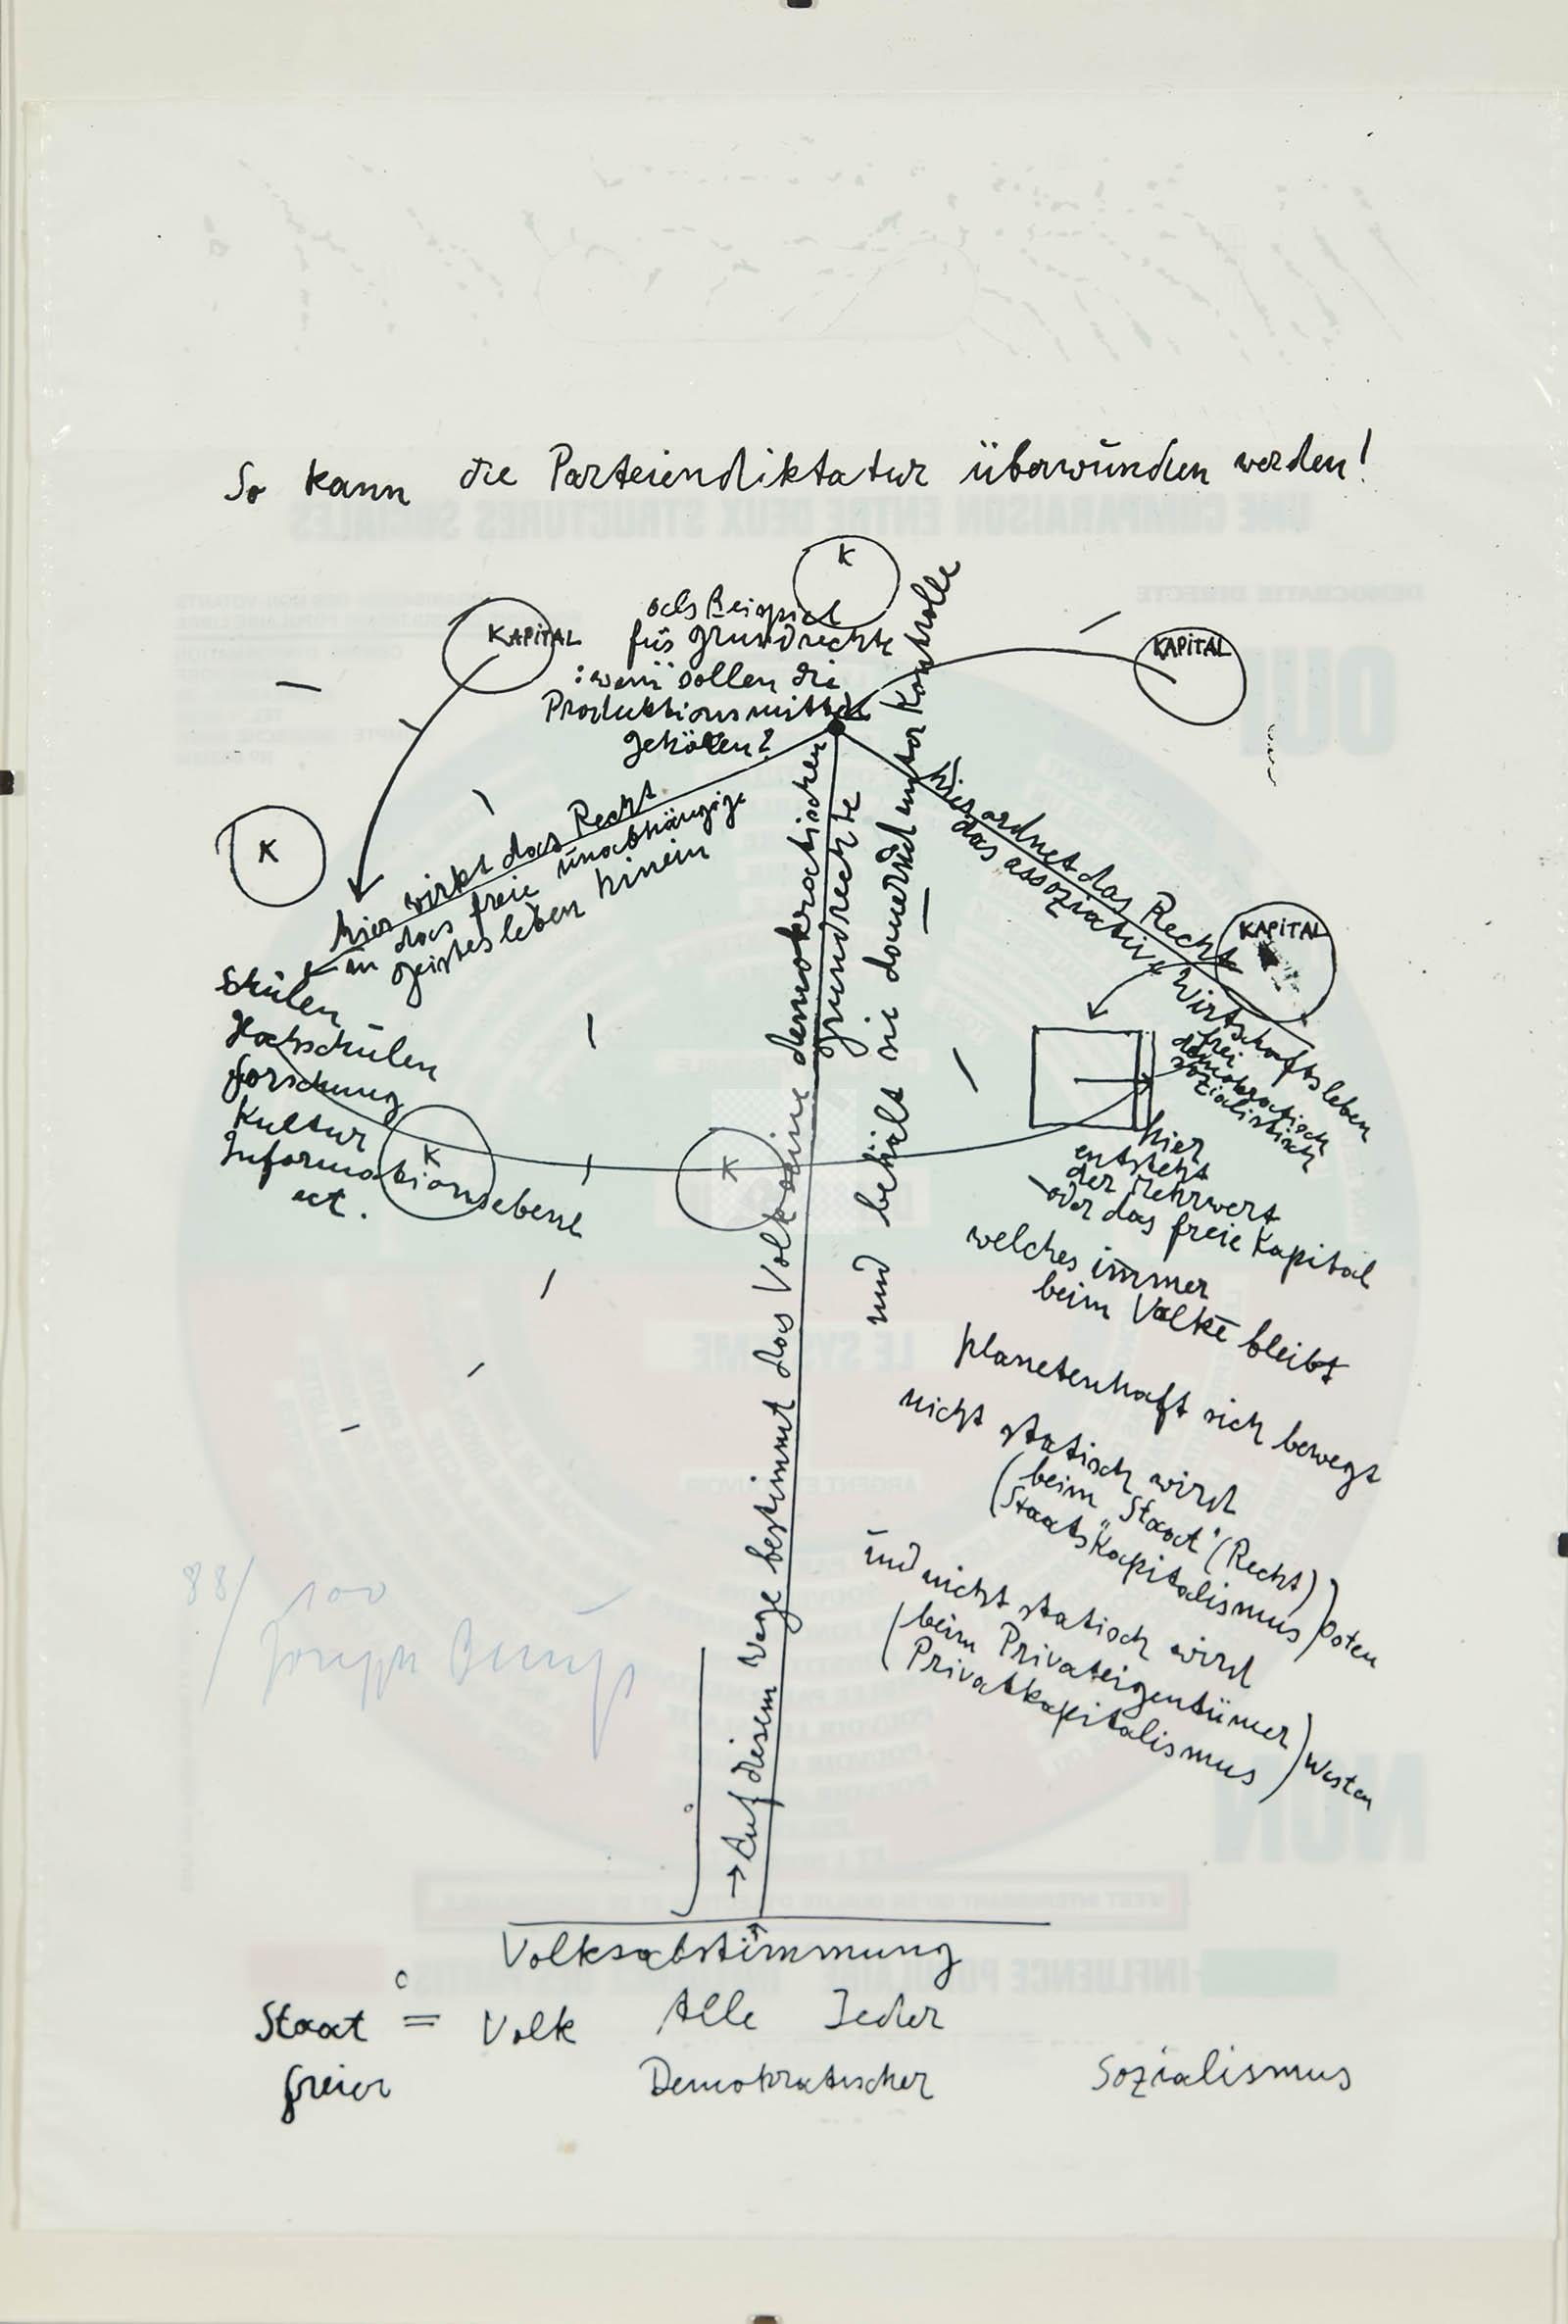 So kann die Parteiendiktatur überwunden werden!
K
KAPITAL
als Beispiel
für Grundrechte
: wem sollen die
Produktionsmittel
gehören?
KAPITAL
K
hier wirkt das Recht
in das freie unabhängige
Geistesleben hinein
Schulen
Hochschulen
Forschung
Kultur
Informationsebene
ect.
K
K
→ Auf diesem Wege bestimmt das Volk seine demokratischen
Grundrechte
und behält sie dauernd unter Kontrolle
hier ordnet das Recht
das assoziative Wirtschaftsleben
KAPITAL
frei
demokratisch
sozialistisch
hier
entsteht
der Mehrwert
oder das freie Kapital
welches immer
beim Volke bleibt
planetenhaft sich bewegt
nicht statisch wird
(beim "Staat" (Recht)
(Staatskapitalismus) Osten
und nicht statisch wird
(beim Privateigentümer)
(Privatkapitalismus) Westen
88/100
Joseph Beuys
Volksabstimmung
Staat = Volk Alle Jeder
freier Demokratischer Sozialismus
UNE COMPARAISON ENTRE DEUX STRUCTURES SOCIALES
DEMOCRATIE DIRECTE
OUI
LE SYSTEME
NON
INFLUENCE POPULAIRE